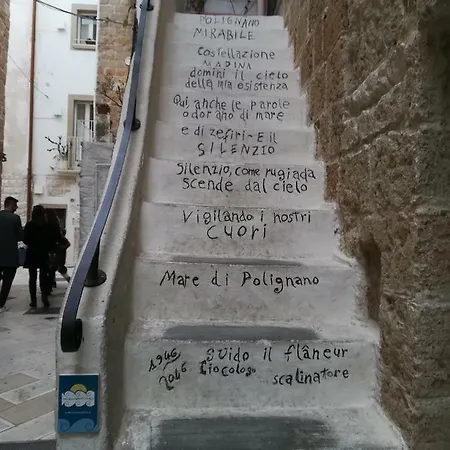 POLIGNANO
MIRABILE
Costellazione
MARINA
domini il cielo
della mia esistenza
Qui, anche le parole
odorano di mare
e di zefiri - E il
SILENZIO
Silenzio, come rugiada
scende dal cielo
Vigilando i nostri
CUORI
Mare di Polignano
1946 Guido il flâneur
2046 Fiocologo scalinatore